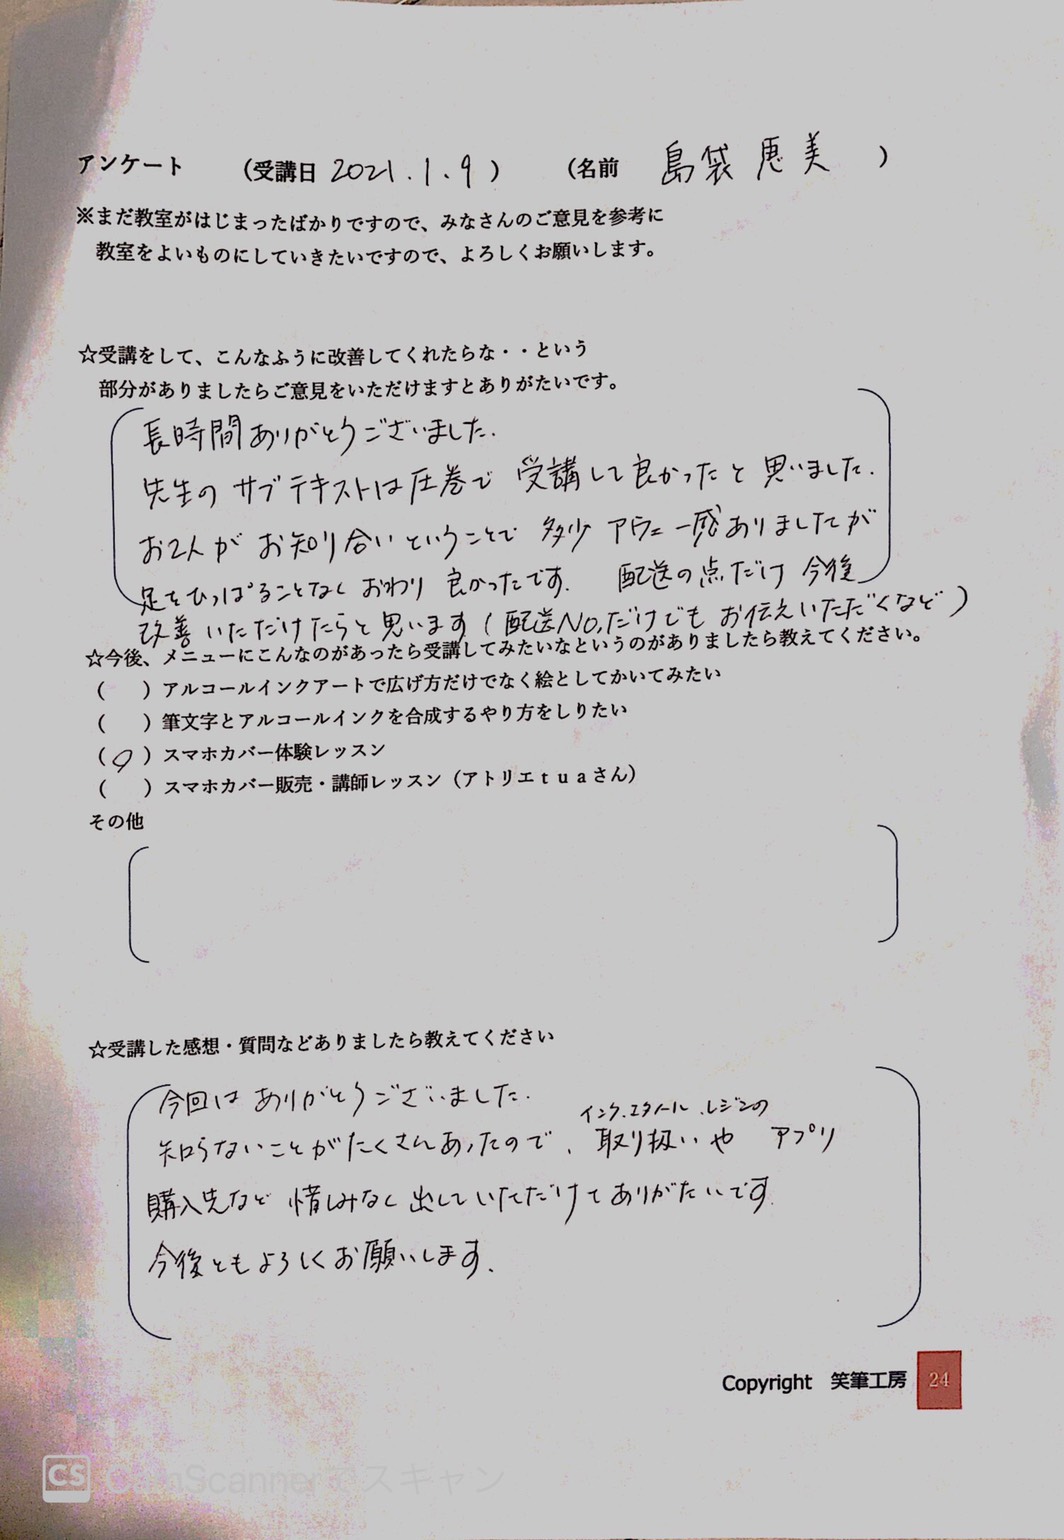 アンケート　（受講日 2021.1.9）　（名前　島袋 恵美　）
※まだ教室がはじまったばかりですので、みなさんのご意見を参考に
教室をよいものにしていきたいですので、よろしくお願いします。
☆受講をして、こんなふうに改善してくれたらな・・という
部分がありましたらご意見をいただけますとありがたいです。
長時間ありがとうございました.
先生の サブテキストは圧巻で 受講して良かったと思いました.
お2人が お知り合いということで 多少 アウェー感ありましたが
足をひっぱることなく おわり 良かったです. 配送の点だけ 今後
改善いただけたらと思います（配送No.だけでも お伝えいただくなど）
☆今後、メニューにこんなのがあったら受講してみたいなというのがありましたら教えてください。
（　　）アルコールインクアートで広げ方だけでなく絵としてかいてみたい
（　　）筆文字とアルコールインクを合成するやり方をしりたい
（○）スマホカバー体験レッスン
（　　）スマホカバー販売・講師レッスン（アトリエｔｕａさん）
その他
☆受講した感想・質問などありましたら教えてください
今回は ありがとうございました.
インク.エタノール.レジンの
知らないことがたくさんあったので、取り扱いや アプリ
購入先など 惜しみなく出していただけてありがたいです.
今後ともよろしくお願いします.
Copyright　笑筆工房　24
CS CamScannerでスキャン